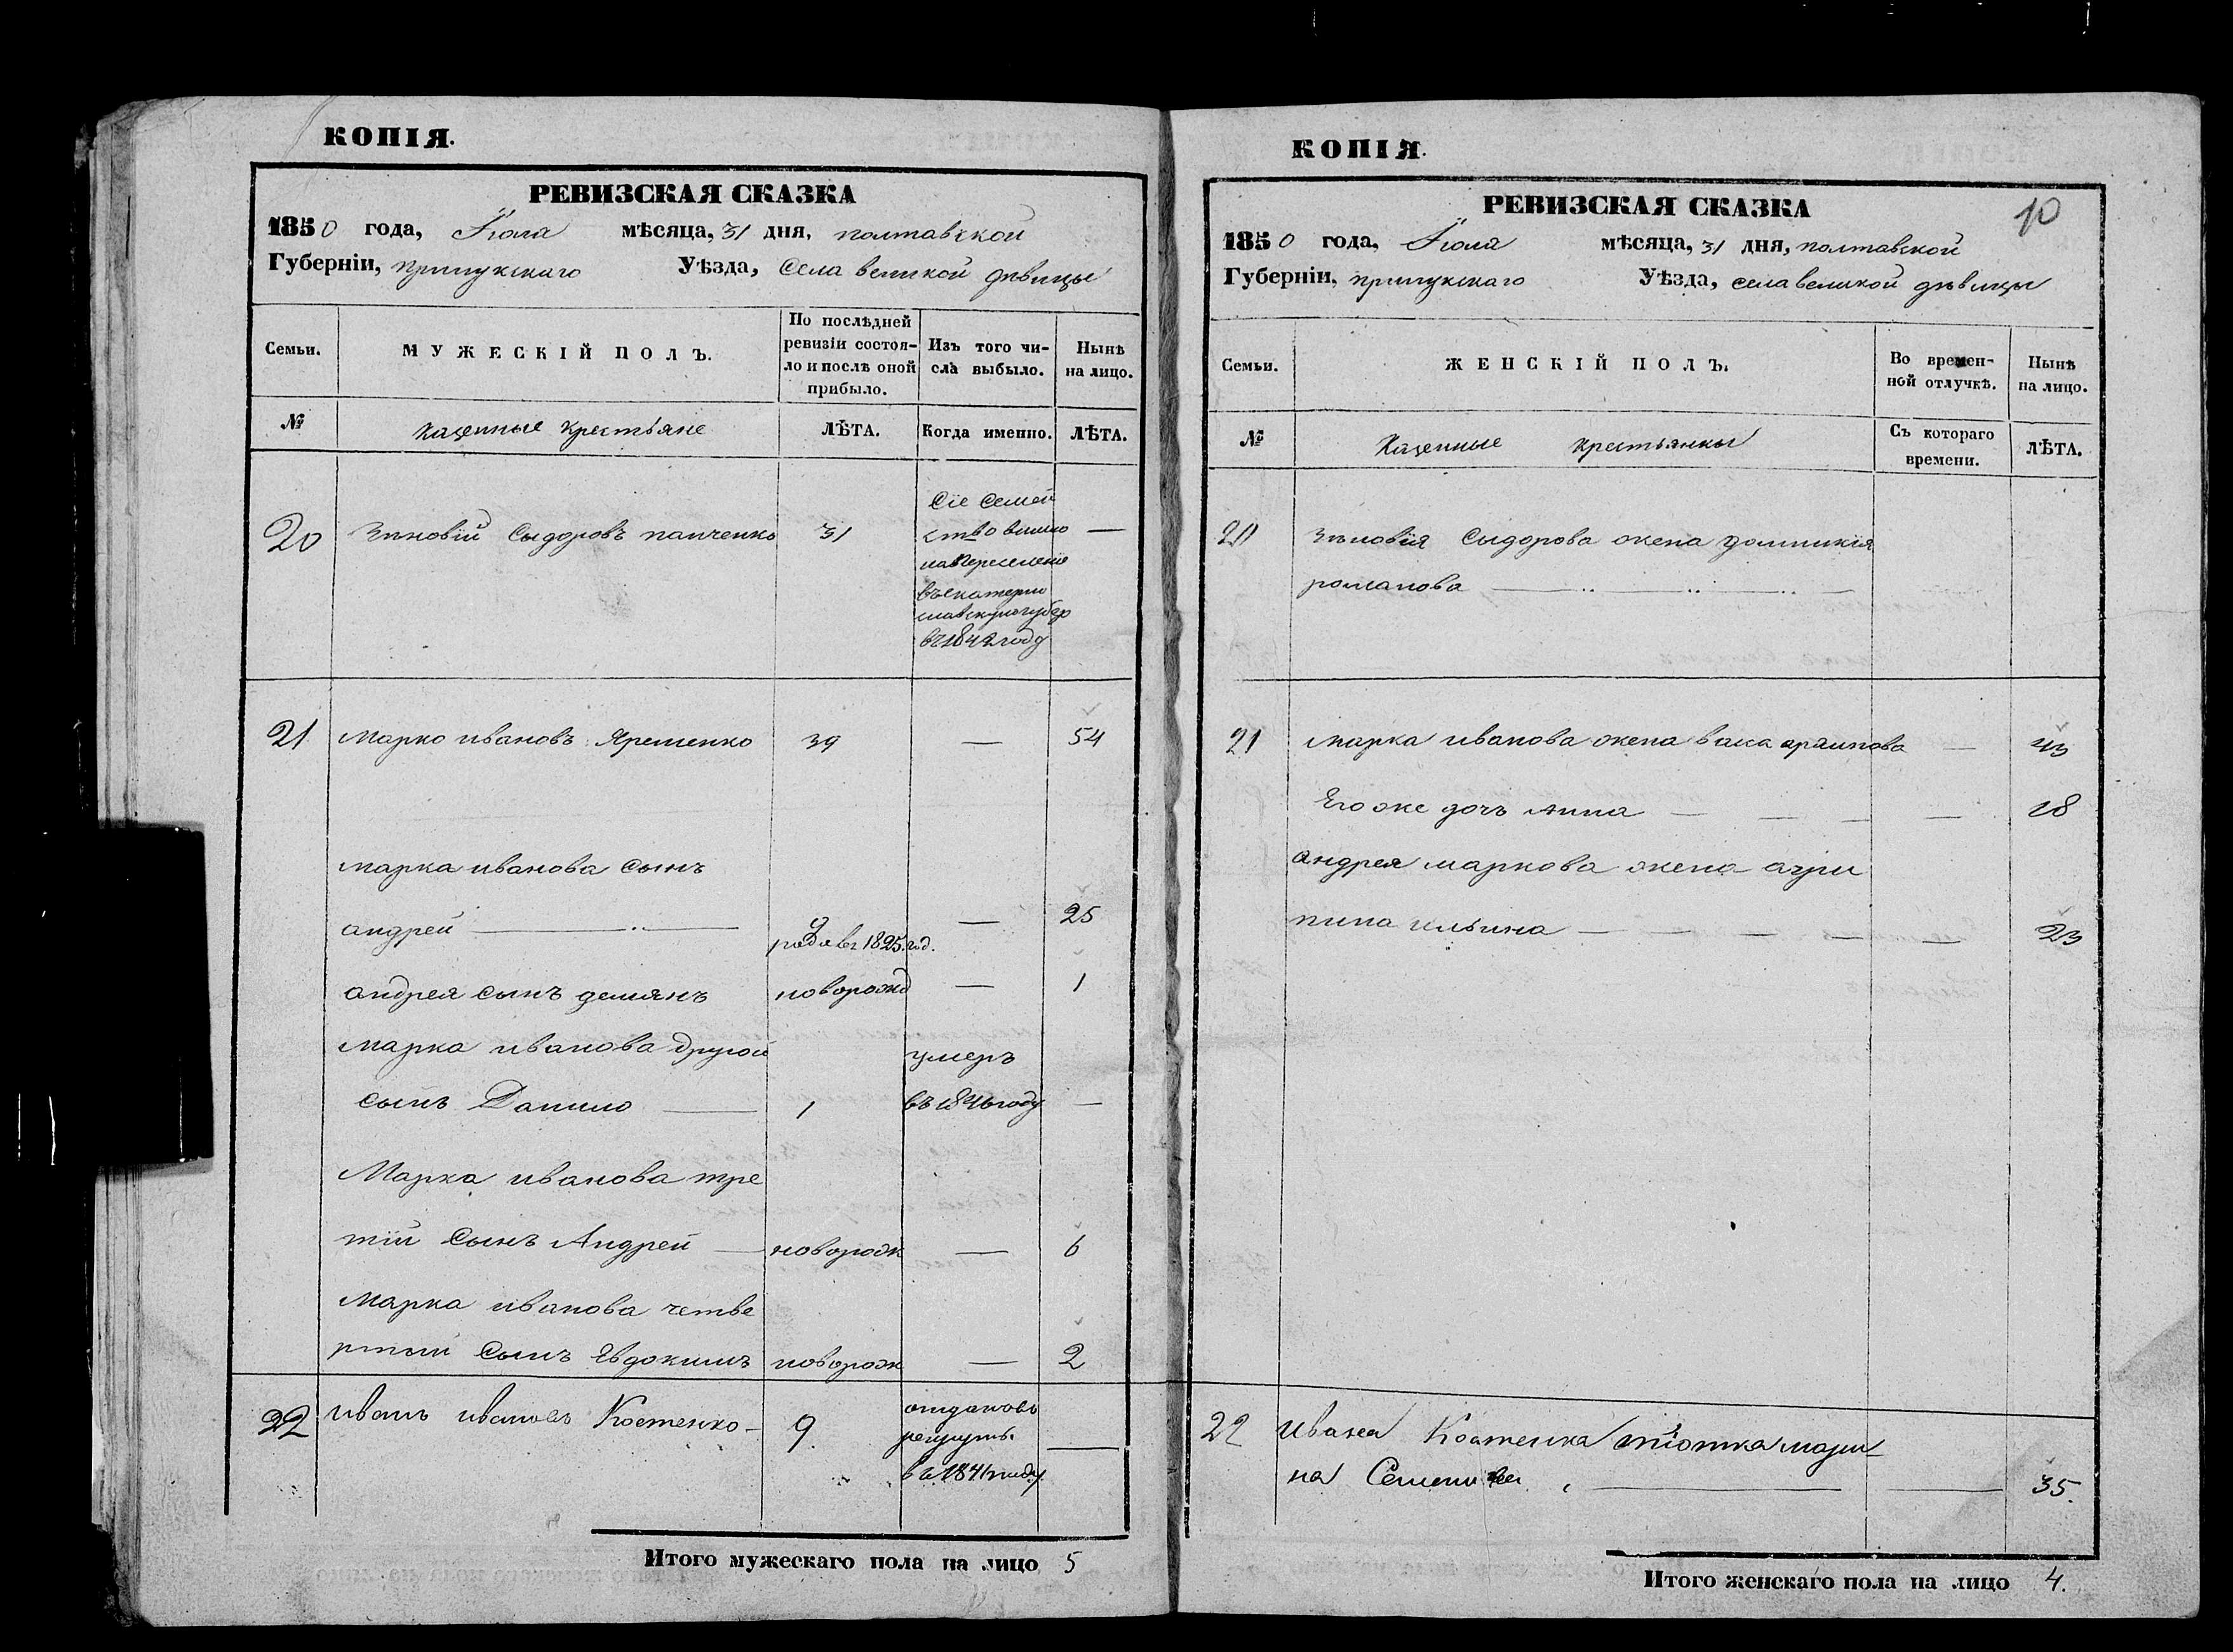 КОПІЯ.
РЕВИЗСКАЯ СКАЗКА
1850 года, Іюля мѣсяца, 31 дня, полтавской
Губерніи, прилукскаго Уѣзда, села великой дѣвицы
Семьи.
МУЖЕСКІЙ ПОЛЪ.
По послѣдней
ревизіи состоя-
ло и послѣ оной
прибыло.
Изъ того чи-
сла выбыло.
Нынѣ
на лицо.
№
Казенные крестьяне
ЛѢТА.
Когда именно.
ЛѢТА.
20 Зѣновій Сыдоровъ панченко 31
Сіе Семей
ство вышло —
на переселеніе
въ екатерино
славскую губер
въ 1842 году
21 Марко ивановъ Яременко 39 — 54
марка иванова сынъ
андрей — 9 — 25
родив 1825 год.
андрея сынъ демянъ новорожд — 1
Марка иванова другой умеръ
сынъ Данило — 1 въ 1846 году —
Марка иванова тре
тій сынъ Андрей — новорож — 6
Марка иванова четве
ртый сынъ Евдокимъ новорож — 2
22 иванъ ивановъ Костенко - 9.
отдановъ
рекруты. —
въ 1841 году.
Итого мужескаго пола на лицо 5
КОПІЯ.
10
РЕВИЗСКАЯ СКАЗКА
1850 года, Іюля мѣсяца, 31 дня, полтавской
Губерніи, прилукскаго Уѣзда, села великой дѣвицы
Семьи.
ЖЕНСКІЙ ПОЛЪ.
Во времен-
ной отлучкѣ.
Нынѣ
на лицо.
№
Казенные крестьянкы
Съ котораго
времени.
ЛѢТА.
20 Зѣновія Сыдорова жена домникія
романова — .. — .. — .. —
21 Марка иванова жена васа — 43
Его же дочъ Анна — — — — 18
андрея маркова жена агри
пина ильина — — — — — 23
22 Ивана Костенка тіотка мари-
на Семенова — — 35.
Итого женскаго пола на лицо 4.